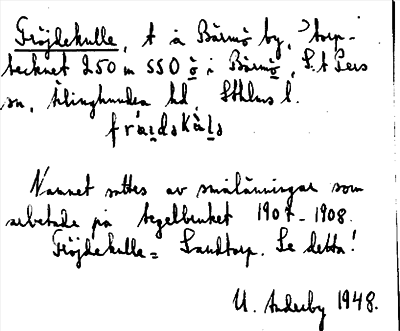 Fröjdekulle, t å Bärmö by, torp-
tecknet 250 m SSO ö i Bärmö, S:t Pers
sn, Åkling hundra hd, Sthlms l.
fråidskuls
Namnet sattes av smålänningar som
arbetade på tegelbruket 1907-1908.
Fröjdekulle = Sandtorp. Se detta!
U. Anderby 1948.